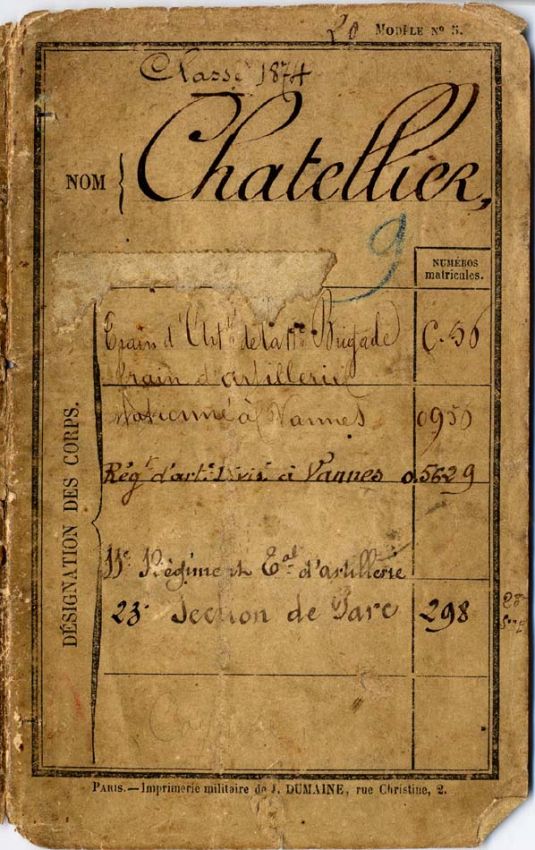 20 MODÈLE N° 5.
Classe 1874
NOM { Chatellier,
9
NUMÉROS
matricules.
DÉSIGNATION DES CORPS.
Train d'Art^ie de la 11e Brigade C. 56
train d'artillerie
à Vannes 0950
Rég^t d'art^ie Divis^re à Vannes 0.5629
11e Régiment T^al d'artillerie
23e Section de Parc 298
PARIS. — Imprimerie militaire de J. DUMAINE, rue Christine, 2.